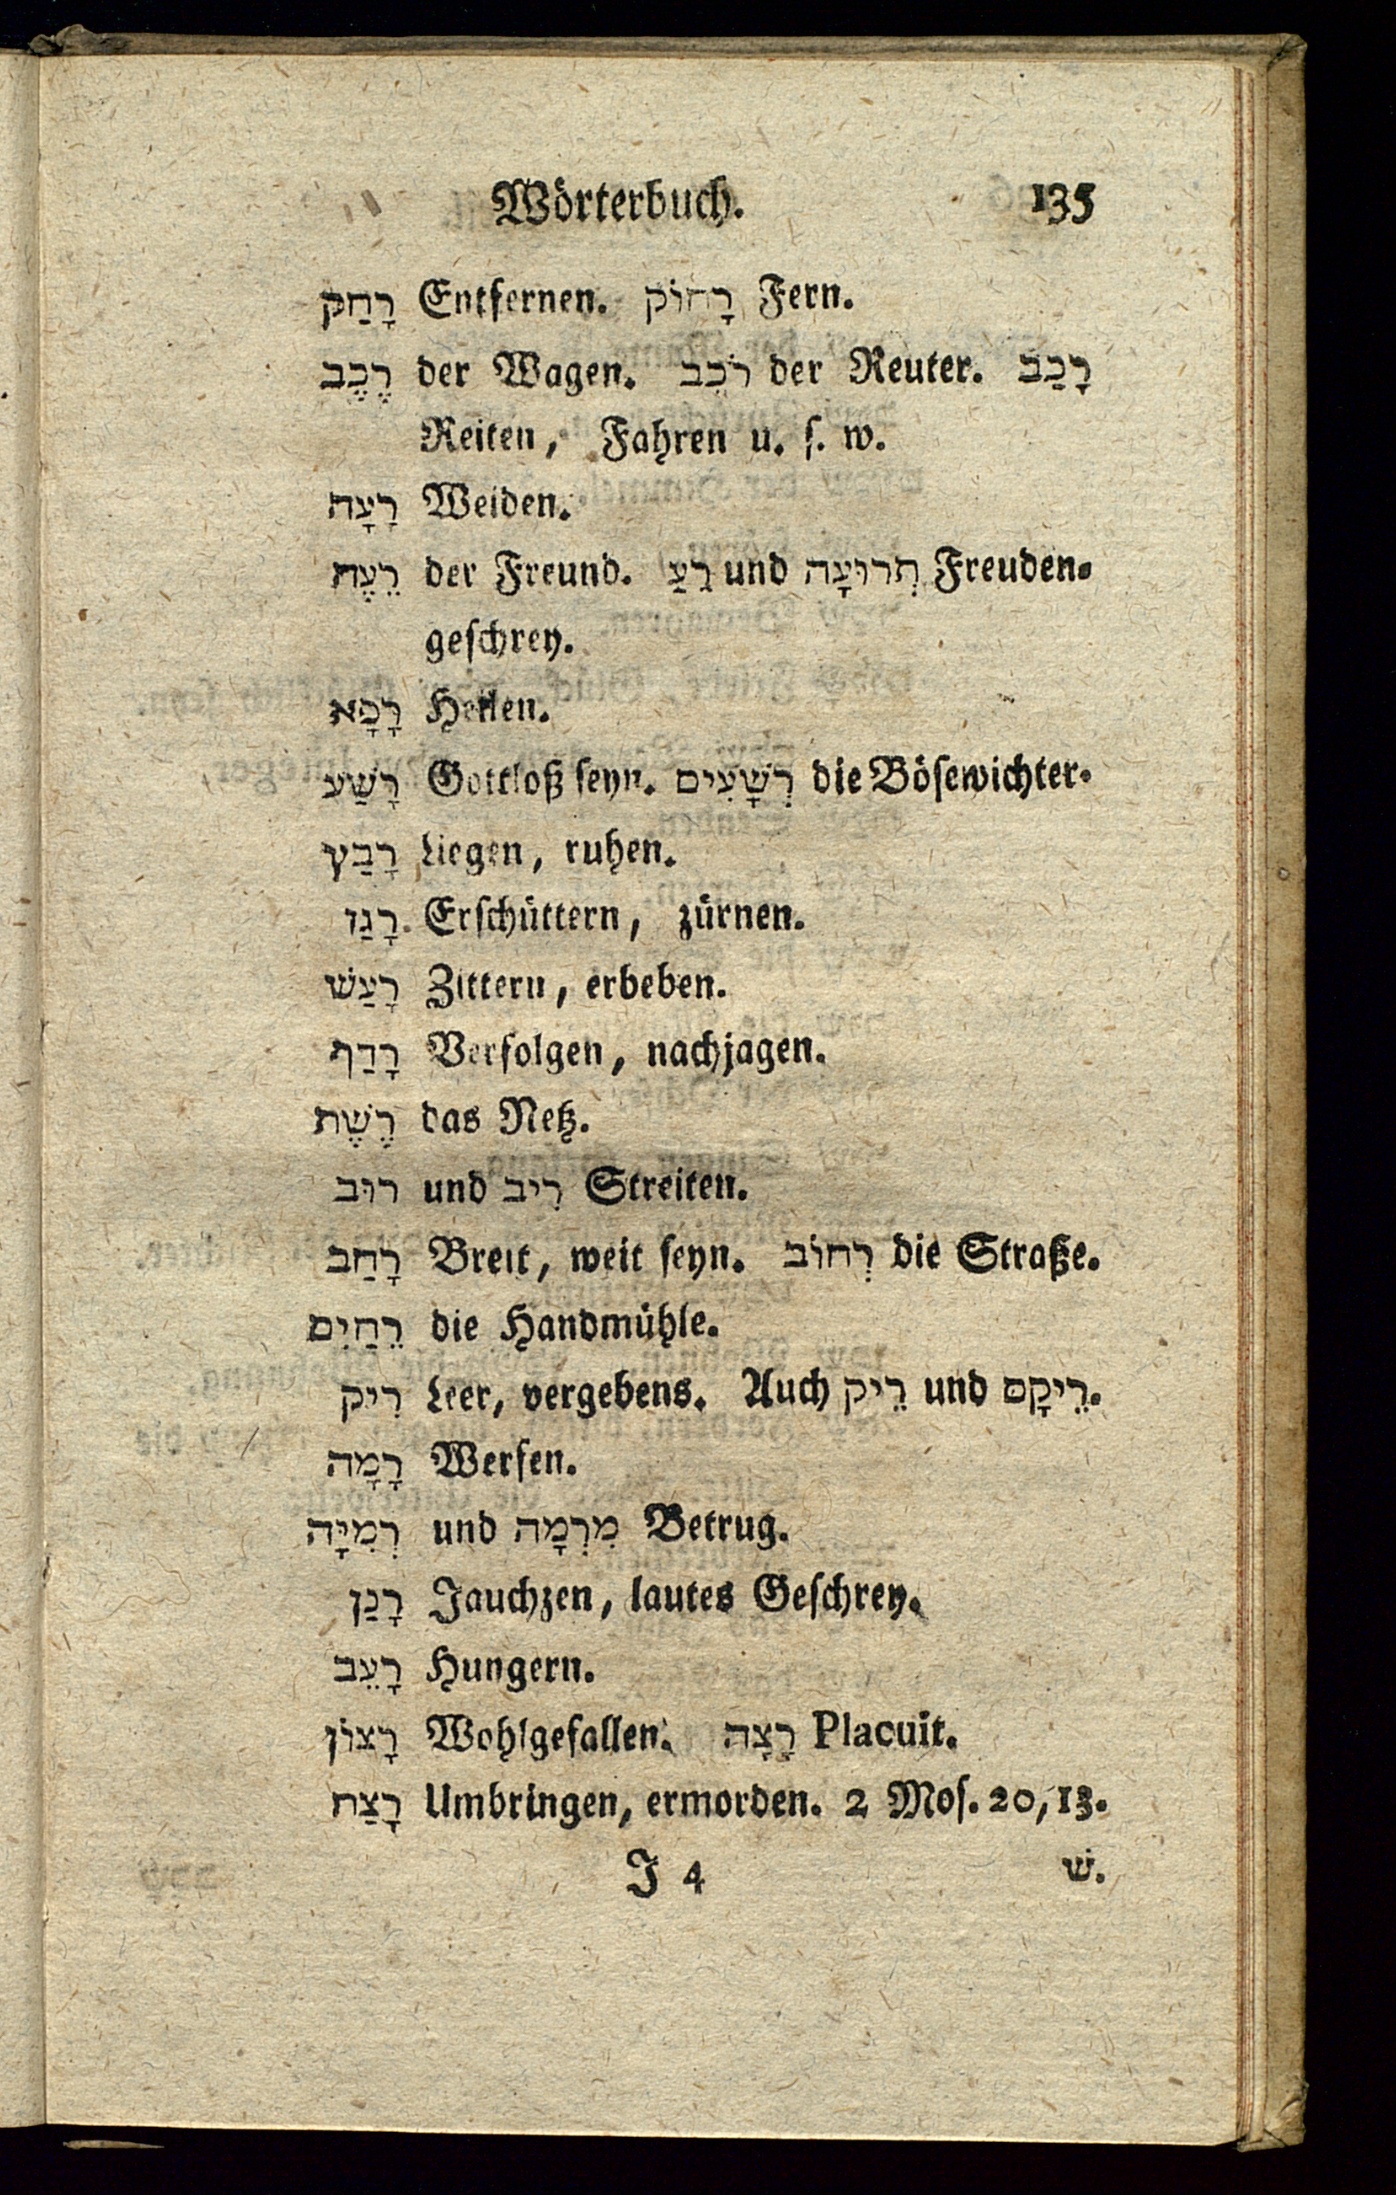 Wörterbuch. 135
רָחַק Entfernen. רָחוֹק Fern.
רֶכֶב der Wagen. רֹכֵב der Reuter. רָכַב
Reiten, Fahren u. ſ. w.
רָעָה Weiden.
רֵעֶה der Freund. רֵעַ und תְרוּעָה Freuden-
geſchrey.
רָפָא Heilen.
רָשַׁע Gottloß ſeyn. רְשָׁעִים die Böſewichter.
רָבַץ Liegen, ruhen.
רָגַז. Erſchüttern, zürnen.
רָעַשׁ Zittern, erbeben.
רָדַף Verfolgen, nachjagen.
רֶשֶׁת das Netz.
רוּב und רִיב Streiten.
רָחַב Breit, weit ſeyn. רְחוֹב die Straße.
רֵחַיִם die Handmühle.
רִיק Leer, vergebens. Auch רֵיק und רֵיקָם.
רָמָה Werfen.
רְמִיָּה und מִרְמָה Betrug.
רָנַן Jauchzen, lautes Geſchrey.
רָעֵב Hungern.
רָצוֹן Wohlgefallen. רָצָה Placuit.
רָצַח Umbringen, ermorden. 2 Moſ. 20, 13.
J 4 שׁ.